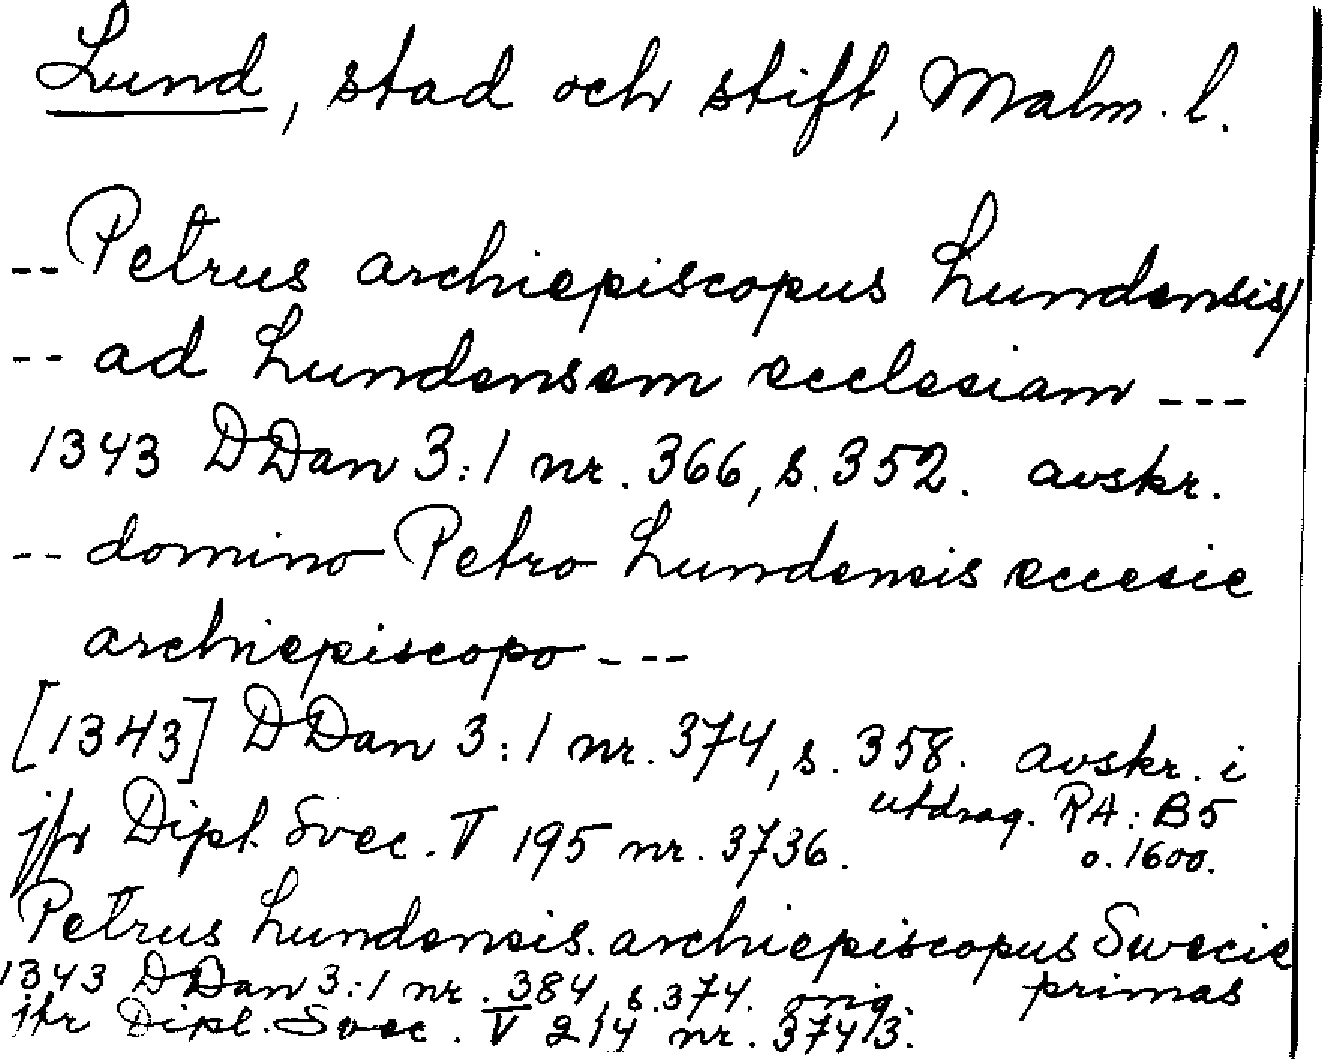 Lund, stad och stift, Malm. l.
-- Petrus archiepiscopus Lundensis/
-- ad Lundensem ecclesiam ---
1343 DDan 3:1 nr. 366, s. 352. avskr.
-- domino Petro Lundensis eccesie
archiepiscopo ---
[1343] DDan 3:1 nr. 374, s. 358. avskr. i
utdrag. RA: B5
jfr Dipl. Svec. V 195 nr. 3736.
o. 1600.
Petrus Lundensis archiepiscopus Swecie
primas
1343 DDan 3:1 nr. 384, s. 374. orig.
jfr Dipl. Svec. V 214 nr. 3743.